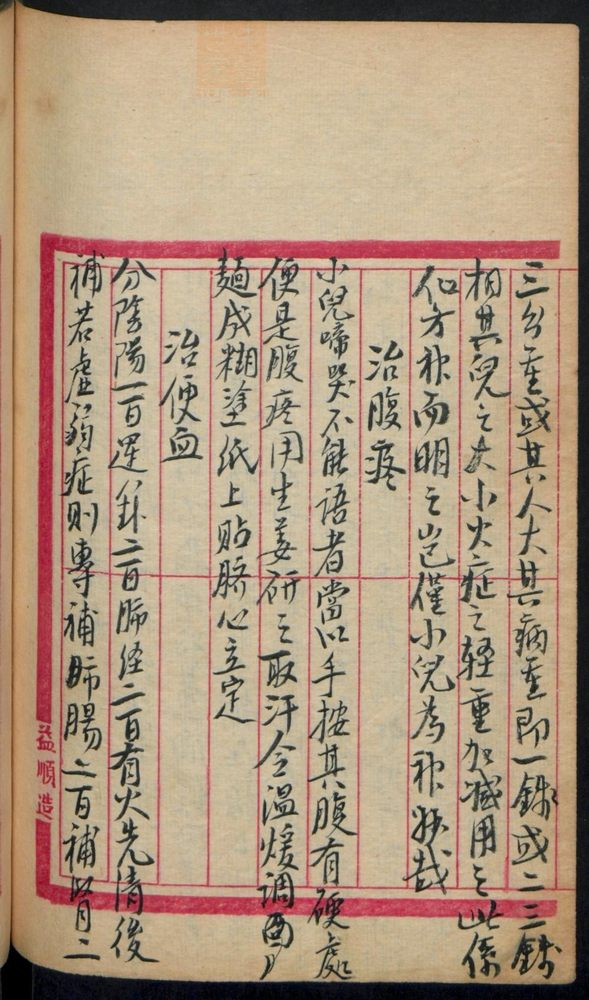 三分重或其人大其病重即一錢或二三錢
相其兒之大小火症之轻重加减用之此係
仙方神而明之豈僅小兒為神妙哉
治腹疼
小兒啼哭不能語者當以手按其腹有硬處
便是腹疼用生姜研之取汗令温煖調面
麺成糊塗纸上贴脐心立定
治便血
分陰陽一百運卦二百肺经二百有火先清後
補若虚弱症则專補肺腸二百補腎二
益順造